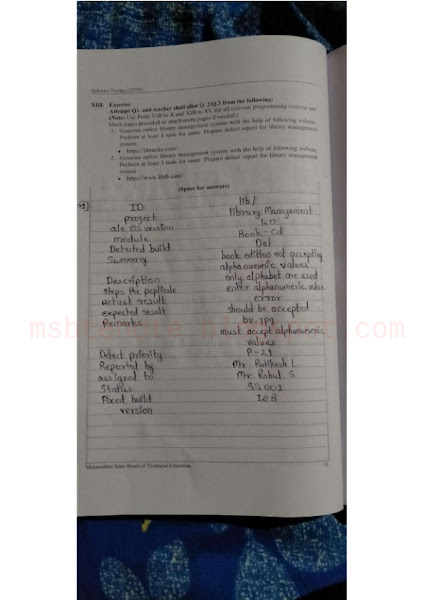 Software Testing (22518)
XIII. Exercise
Attempt Q1. and teacher shall allot Q. 2/Q.3 from the following:
(Note: Use Point VIII to X and XIII to XV for all relevant programming exercise use
blank pages provided or attach more pages if needed.)
1. Generate online library management system with the help of following website.
Perform at least 4 tests for same. Prepare defect report for library management
system.
• https://librarika.com/
2. Generate online library management system with the help of following website.
Perform at least 3 tests for same. Prepare defect report for library management
system
• https://www.libib.com/
(Space for answers)
ID lib1
project library Management
version 1.0
module Book-Cd
Detected build Del
Summary book edition not accepting
alphanumeric values
Description only alphabet are used
steps the peplicate enter alphanumeric value
actual result error
expected result should be accepted
Remarks by.jpg
must accept alphanumeric
values
Defect priority P-21
Reported by Mr. Rutikesh L.
assigned to Mr. Rahul S
Status SS001
Fixed build 1.0B
version
Maharashtra State Board of Technical Education